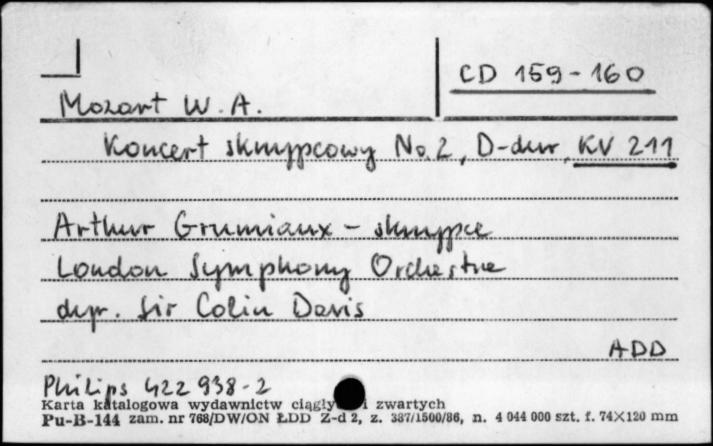 CD 159-160
Mozart W. A.
Koncert skrzypcowy No. 2, D-dur, KV 211
Arthur Grumiaux - skrzypce
London Symphony Orchestra
dyr. Sir Colin Davis
ADD
Philips 422 938-2
Karta katalogowa wydawnictw ciągły i zwartych
Pu-B-144 zam. nr 768/DW/ON ŁDD Z-d 2, z. 387/1500/86, n. 4 044 000 szt. f. 74×120 mm